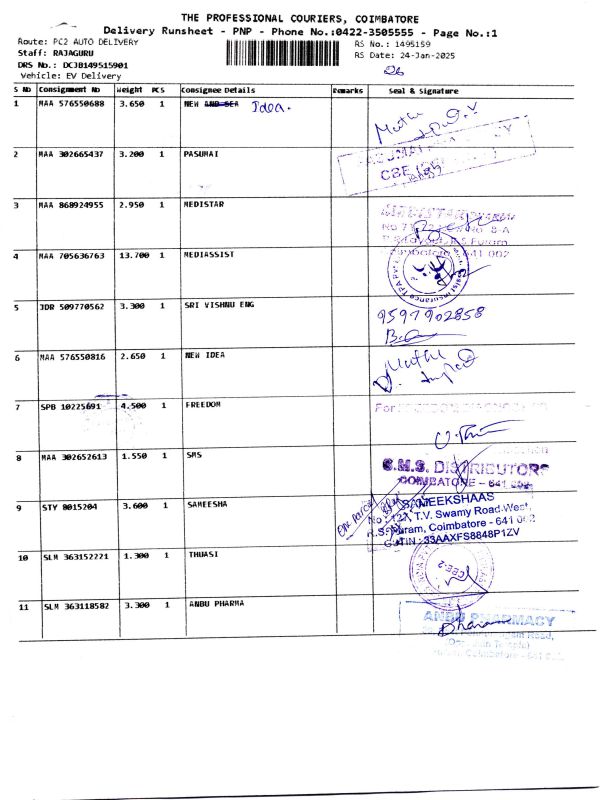 THE PROFESSIONAL COURIERS, COIMBATORE
Delivery Runsheet - PNP - Phone No.:0422-3505555 - Page No.:1
Route: PC2 AUTO DELIVERY
RS No.: 1495159
Staff: RAJAGURU
RS Date: 24-Jan-2025
DRS No.: DCJB149515901
Vehicle: EV Delivery
S No Consignment No Weight PCS Consignee Details Remarks Seal & Signature
1 MAA 576550688 3.650 1 NEW AND SEA Idea.
2 MAA 302665437 3.200 1 PASUMAI
CBE
3 MAA 868924955 2.950 1 MEDISTAR
641 002
4 MAA 705636763 13.700 1 MEDIASSIST
5 JDR 509770562 3.300 1 SRI VISHNU ENG
9597902858
6 MAA 576550816 2.650 1 NEW IDEA
7 SPB 10225691 4.500 1 FREEDOM
For
8 MAA 302652613 1.550 1 SMS
S.M.S. DISTRIBUTORS
COIMBATORE - 641
9 STY 8015204 3.600 1 SAMEESHA
One parcel
SAMEEKSHAAS
No : 127, T.V. Swamy Road-West,
R.S. Puram, Coimbatore - 641 002
GSTIN : 33AAXFS8848P1ZV
10 SLM 363152221 1.300 1 THUASI
CBE-2
11 SLM 363118582 3.300 1 ANBU PHARMA
ANBU PHARMACY
Road,
Coimbatore - 641